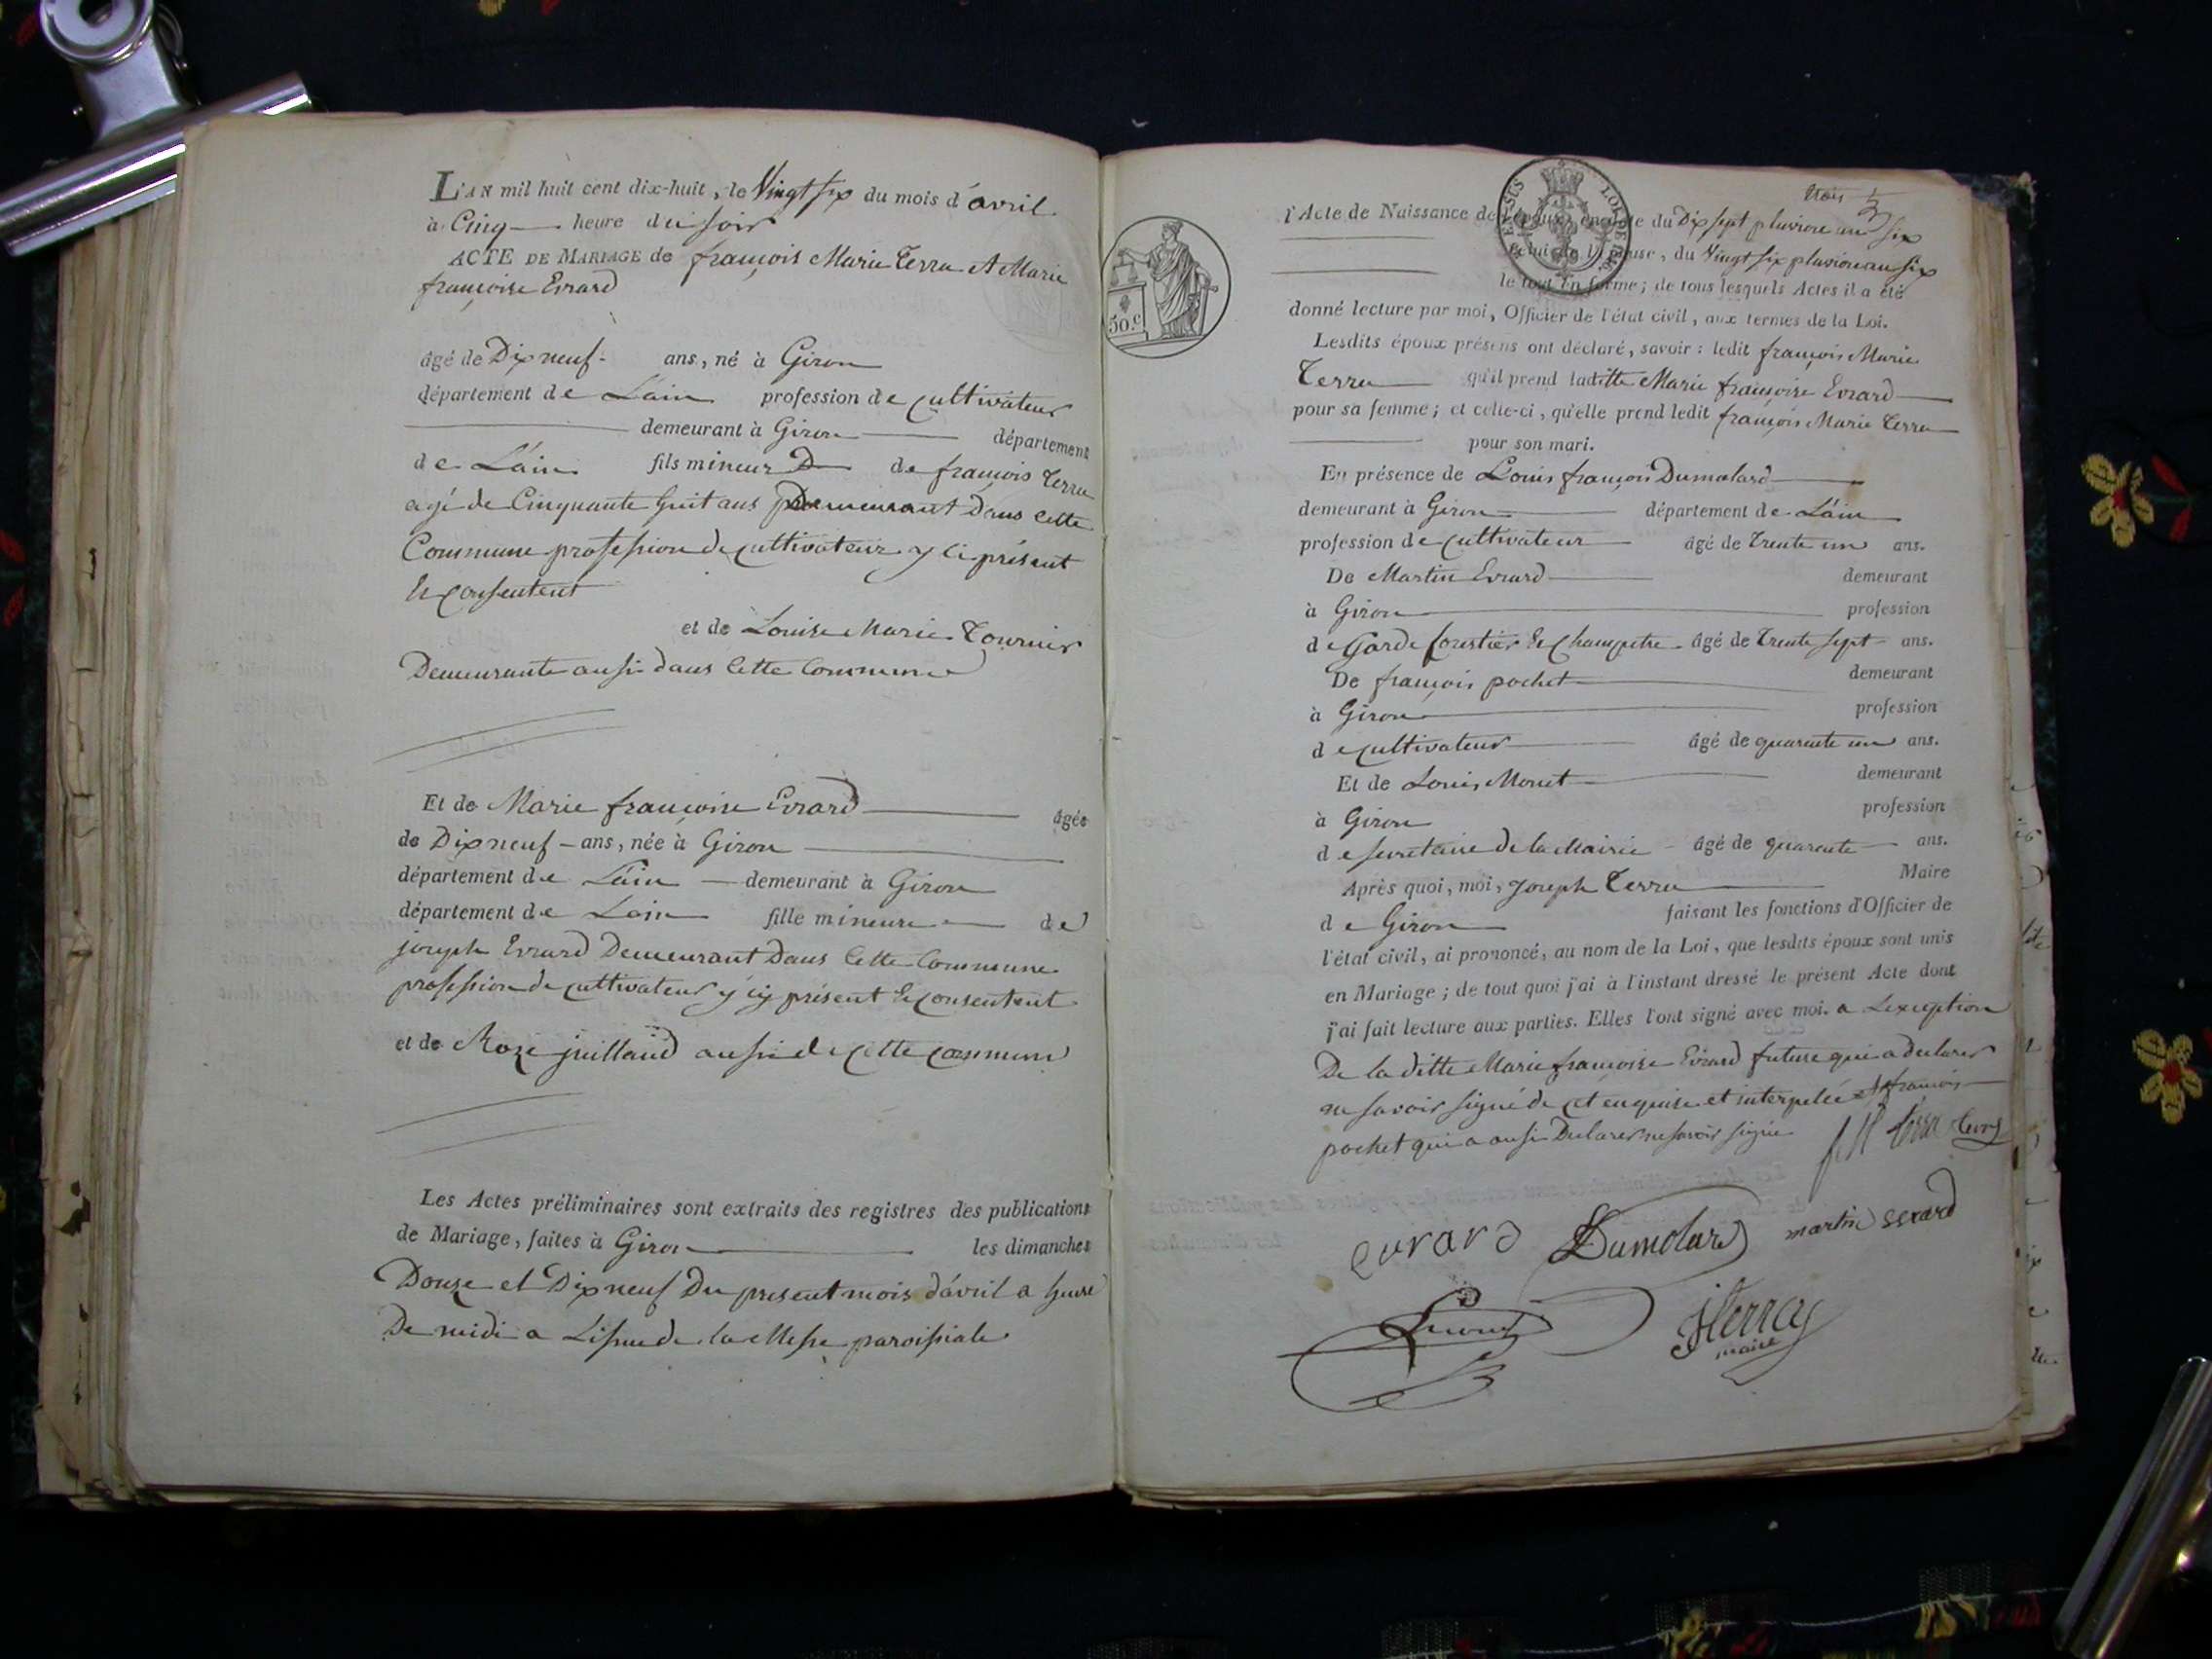 L'AN mil huit cent dix-huit, le Vingt six du mois d'avril
à Cinq heure du soir
ACTE DE MARIAGE de françois Marie Terra Et Marie
françoise Evrard
âgé de Dix neuf ans, né à Giron
département de L'ain profession de cultivateur
demeurant à Giron département
de L'ain fils mineur D de françois Terra
agé de Cinquante huit ans Demeurant Dans cette
Commune profession de cultivateur y ci présent
et consentent
et de Louise Marie Tournier
Demeurante ausi dans cette Commune
Et de Marie françoise Evrard âgée
de Dix neuf ans, née à Giron
département de L'ain demeurant à Giron
département de Lain fille mineure de
joseph Evrard Demeurant Dans cette Commune
profession de cultivateur y cy présent et consentent
et de Roze juilland ausi de cette commune
Les Actes préliminaires sont extraits des registres des publications
de Mariage, faites à Giron les dimanches
Douze et Dix neuf Du present mois d'avril a heure
De midi a Lisue de la Messe paroissiale
50.c
trois
l'Acte de Naissance de l'époux, en date du Dix sept pluviose an six
celui de l'épouse, du Vingt six pluviose an six
le tout en forme; de tous lesquels Actes il a été
donné lecture par moi, Officier de l'état civil, aux termes de la Loi.
Lesdits époux présens ont déclaré, savoir : ledit françois Marie
Terra qu'il prend laditte Marie françoise Evrard
pour sa femme; et celle-ci, qu'elle prend ledit françois Marie Terra
pour son mari.
En présence de Louis françois Dumolard
demeurant à Giron département de L'ain
profession de cultivateur âgé de Trente un ans.
De Martin Evrard demeurant
à Giron profession
de Garde forestier et Champetre âgé de Trente sept ans.
De françois pochet demeurant
à Giron profession
de cultivateur âgé de quarante un ans.
Et de Louis Monet demeurant
à Giron profession
de secretaire de la Mairie âgé de quarante ans.
Après quoi, moi, Joseph Terra Maire
de Giron faisant les fonctions d'Officier de
l'état civil, ai prononcé, au nom de la Loi, que lesdits époux sont unis
en Mariage ; de tout quoi j'ai à l'instant dressé le présent Acte dont
j'ai fait lecture aux parties. Elles l'ont signé avec moi. a Lexception
De la ditte Marie françoise Evrard future qui a declarer
ne savoir signé de ce enquise et interpelée et françois
pochet qui a ausi Declarer ne savoir signé
f M terra terra
evrard Dumolard martin evrard
L monet JTerra
maire